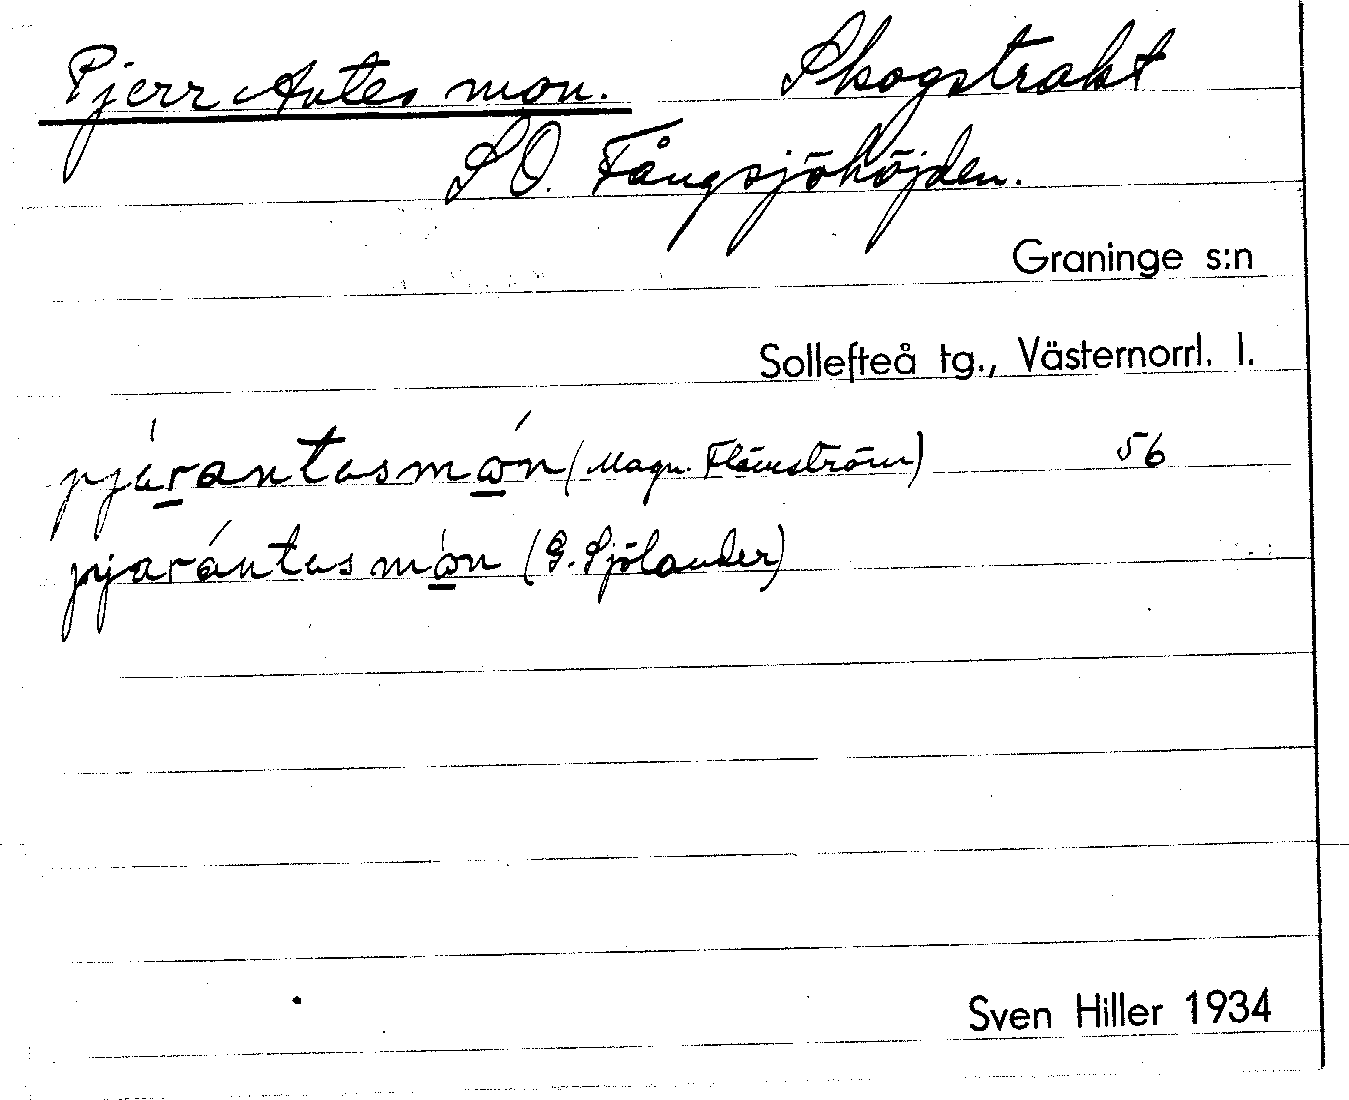 Pjerr Antes mon. Skogstrakt
SO. Fångsjöhöjden.
Graninge s:n
Sollefteå tg., Västernorrl. l.
pjärantasmón (Magn. Flemström) 56
pjarántasmon (G. Sjölander)
Sven Hiller 1934